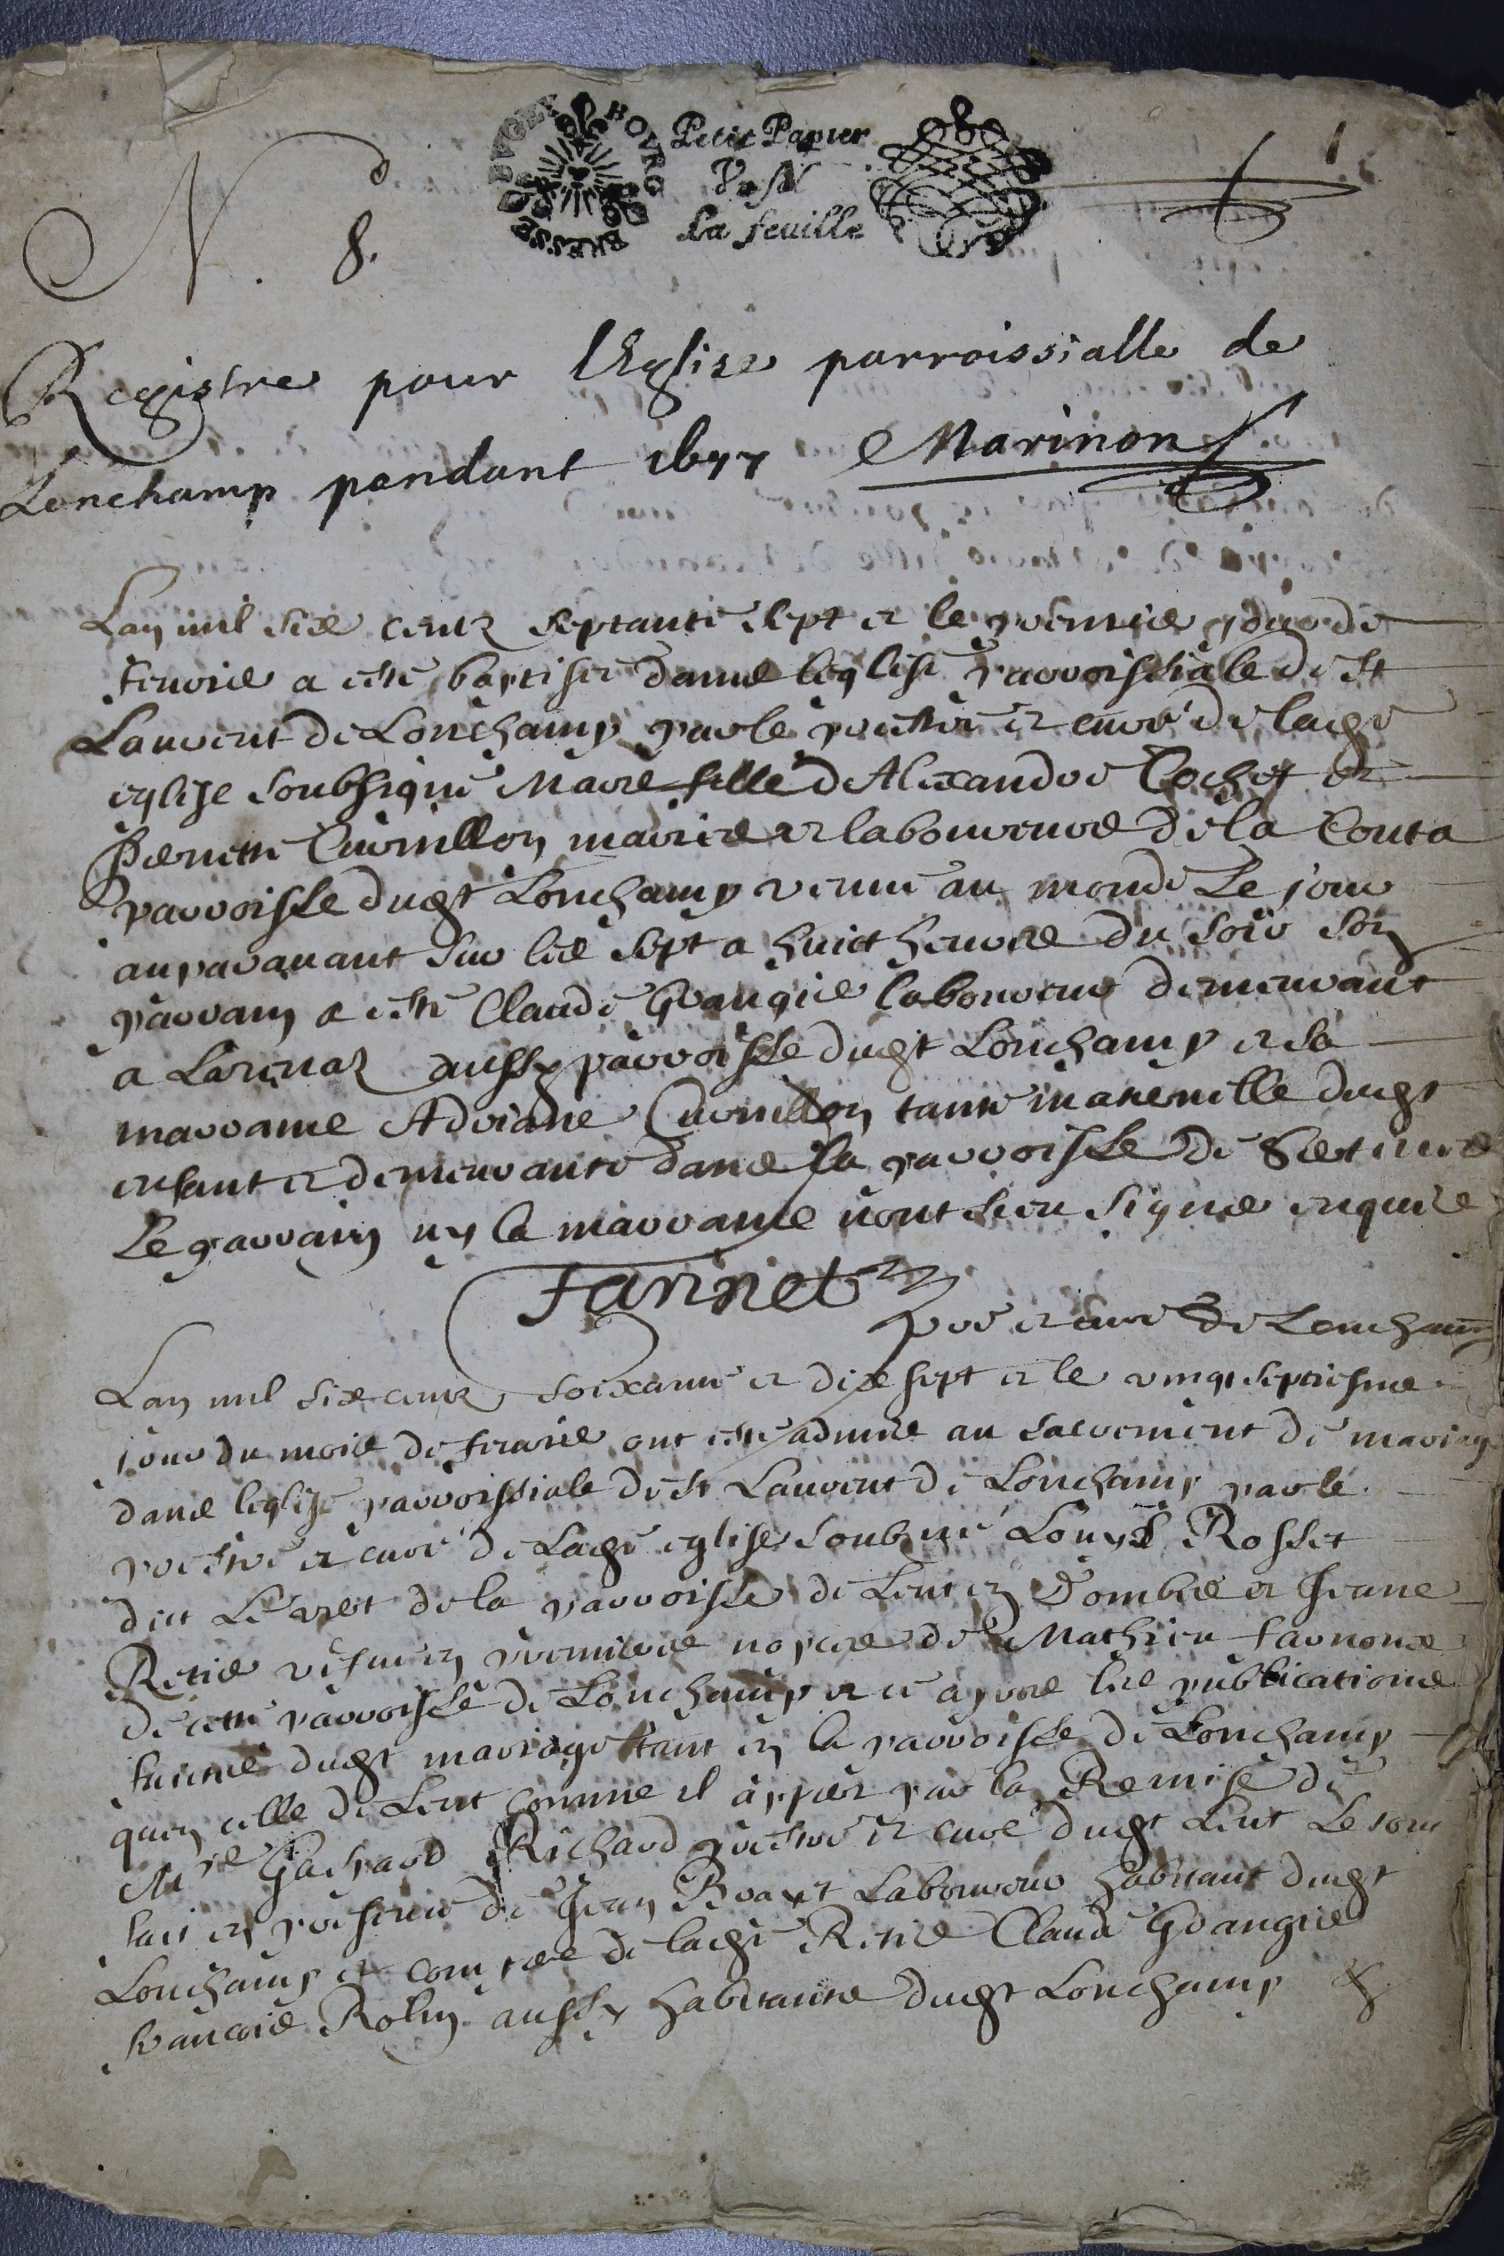 BVGEY BOVRG BRESSE
Petit Papier
La feuille
1
N.° 8.
Registre pour l'Eglise parroissialle de
Lonchamp pendant 1677 Marinon
Lan mil six centz septante sept et le premier jour de
feuvrier a esté baptisée dans leglise parroissiale de st
Laurent de Lonchamp par le prestre et curé de ladte
eglise soubsigné Marie fille de Alexandre Cochet et
Pernette Cuvrillon mariés et laboureurs de la Couta
parroisse dudt Lonchamp venue au monde Le jour
auparavant sur les sept a huict heures du soir son
parrain a esté Claude Grangier laboureur demeurant
a Larenaz aussy parroisse dudt Lonchamp et sa
marraine Adriane Cuvrillon tante maternelle dudt
enfant et demeurante dans la parroisse de
Le parrain ny la marraine nont sceu signer enquis
Farinet
pre et curé de Lonchamp
Lan mil six centz soixante et dix sept et le vingt septiesme
jour du mois de feuvrier ont esté admis au sacrement de mariage
dans leglise parroissiale de st Laurent de Lonchamp par le
prestre et curé de Ladte eglise soubné Louys Rosset
dict Levret de la parroisse de Lent en Dombes et Jeanne
Retis vefve en premieres nopces de Mathieu Favnons
de cette parroisse de Lonchamp et ce apres les publications
faictes dudt mariage tant en la parroisse de Lonchamp
quen celle de Lent comme il appert par la Remise de
Mre Gaspard Richard prestre et curé dudt Lent Le tout
faict en presence de Jean Brayt Laboureur habitant dudt
Lonchamp et compere de ladte Retis Claude Grangier
francois Rolin aussy habitants dudt Lonchamp &